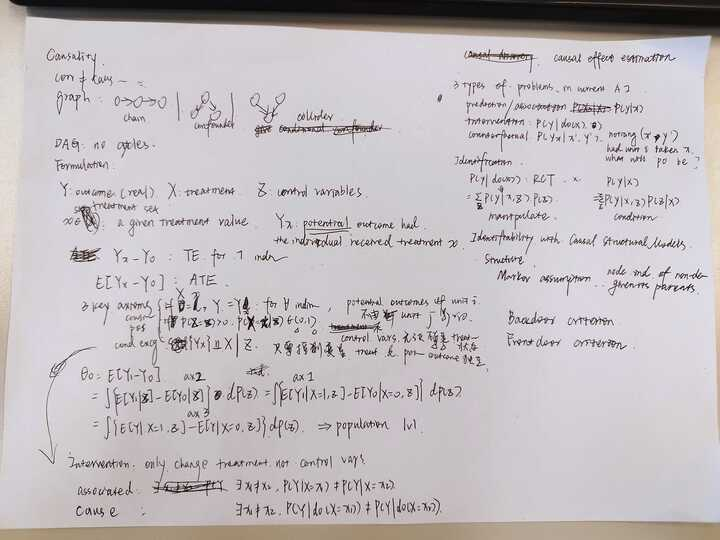 Causality.
corr ≠ caus
graph:
chain
confounder
collider
DAG: no cycles.
Formulation:
Y: outcome (real). X: treatment. Z: control variables.
treatment set
x∈ : a given treatment value. Yx: potential outcome had
the individual received treatment x.
Yx - Y0 : TE. for 1 indiv
E[Yx - Y0] : ATE.
3 key axioms
for ∀ indiv, potential outcomes of unit i.
P(Z=z)>0. ∈(0,1)
control vars.
cond exchg {Yx} ⫫ X | Z.
θ0 = E[Y1-Y0] ax2 ax1
= ∫{E[Y1|Z] - E[Y0|Z]} dP(z) = ∫{E[Y1|X=1,z] - E[Y0|X=0,z]} dP(z)
ax3
= ∫{E[Y|X=1,z] - E[Y|X=0,z]} dP(z). ⇒ population lvl.
Intervention: only change treatment. not control vars.
associated: ∃ x1≠x2, P(Y|X=x1) ≠ P(Y|X=x2)
cause : ∃ x1≠x2. P(Y|do(X=x1)) ≠ P(Y|do(X=x2)).
causal discovery. causal effect estimation
3 types of problems in current AI.
prediction/association P(Y|X)
intervention: P(Y|do(x),
counterfactual P(Yx|x', Y'). noticing (x', y')
had unit i taken x.
what will po be?
Identification.
P(Y|do(x)): RCT. x P(Y|X)
= Σ P(Y|x,z) P(z). = Σ P(Y|x,z) P(z|x)
manipulate. condition
Identifiability with Causal Structural Models.
structure.
Markov assumption. node ind. of non-de-
given its parents.
Backdoor criterion
Frontdoor criterion.